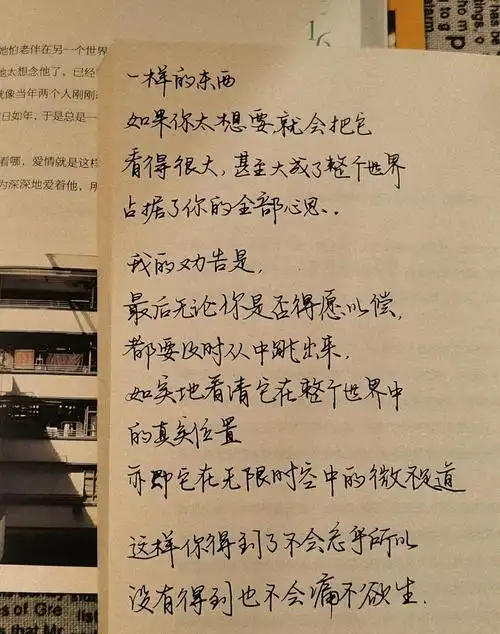 她怕老伴在另一个世界
他太想念他了，已经
就像当年两个人刚刚
度日如年，于是总是一
看哪，爱情就是这样
为深深地爱着他，所
16
一样的东西
如果你太想要，就会把它
看得很大，甚至大成了整个世界
占据了你的全部心思..
我的劝告是，
最后无论你是否得愿以偿，
都要及时从中跳出来，
如实地看清它在整个世界中
的真实位置
亦即它在无限时空中的微不足道
这样你得到了不会忘乎所以
没有得到也不会痛不欲生.
es of Gre
s that Mr
has be
ings, o
ho m
to g
alarm